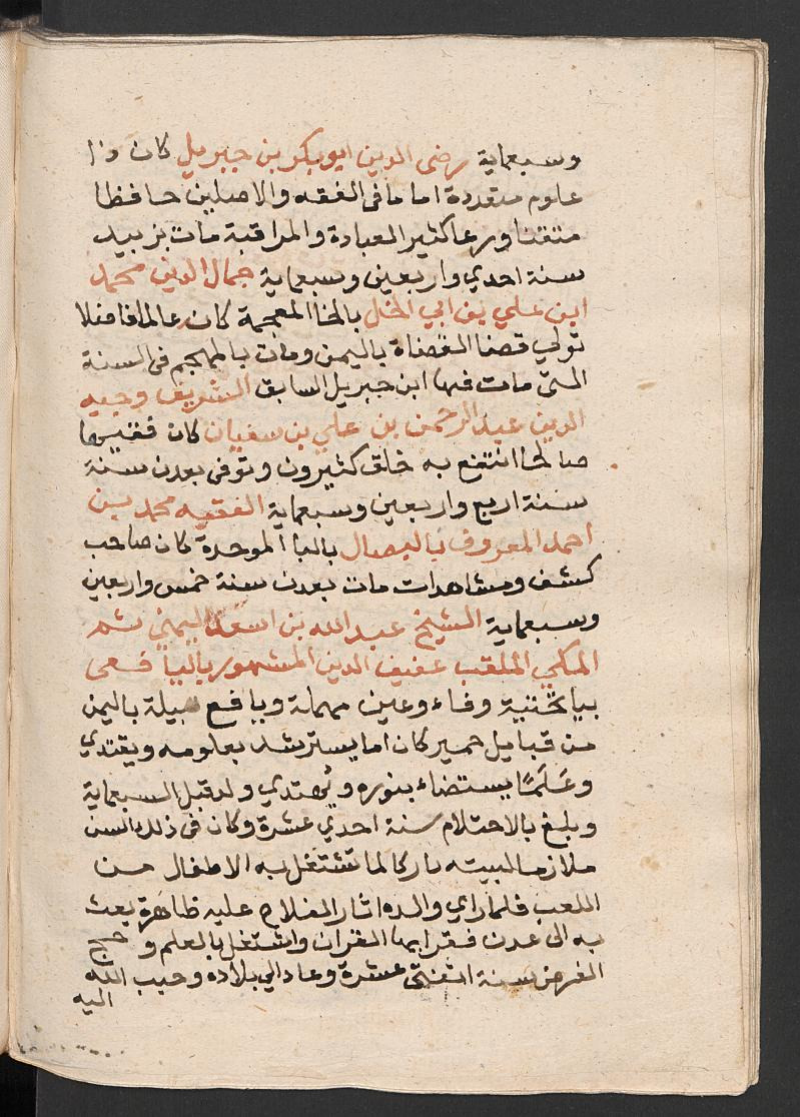 وسبعماية رضى الدين ابوبكر بن جبريل كان ذا
علوم متعددة اماما فى الفقه والاصلين حافظا
متقنا ورعا كثير العبادة والمراقبة مات بزبيد
سنة احدي واربعين وسبعماية جمال الدين محمد
ابن علي بن ابي الخل بالخا المعجمة كان عالما فاضلا
تولي قضا القضاة باليمن ومات بالمهجم فى السنة
التى مات فيها ابن جبريل السابق الشريف وجيه
الدين عبد الرحمن بن علي بن سفيان كان فقيها
صالحا انتفع به خلق كثيرون وتوفى بعدن سنة
سنة اربع واربعين وسبعماية الفقيه محمد بن
احمد المعروف بالبصال بالبا الموحدة كان صاحب
كشف ومشاهدات مات بعدن سنة خمس واربعين
وسبعماية الشيخ عبد الله بن اسعد اليمني ثم
المكي الملقب عفيف الدين المشهور باليافعى
بيا تحتية وفاء وعين مهملة ويافع قبيلة باليمن
من قبايل حمير كان اما يسترشد بعلومه ويقتدي
وعَلَمًا يستضاء بنوره ويُهتدي ولد قبل السبعماية
وبلغ بالاحتلام سنة احدي عشرة وكان فى ذلك السن
ملازما لبيته تاركا لما تشتغل به الاطفال من
اللعب فلما راي والده اثار الفلاح عليه ظاهرة بعث
به الى عدن فقرا بها القران واشتغل بالعلم وحج
الفرض سنة اثنتى عشرة وعاد الي بلاده وحبب الله
اليه